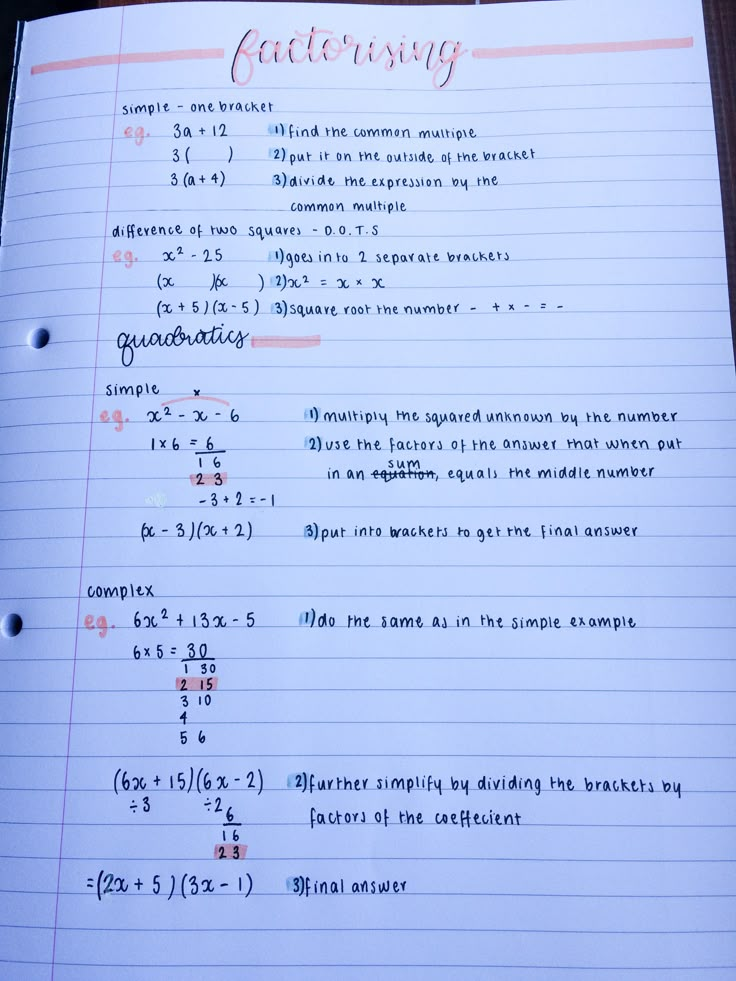 factorising
simple - one bracket
eg. 3a + 12 1) find the common multiple
3( ) 2) put it on the outside of the bracket
3(a + 4) 3) divide the expression by the
common multiple
difference of two squares - D.O.T.S
eg. x² - 25 1) goes in to 2 separate brackets
(x )(x ) 2) x² = x × x
(x + 5)(x - 5) 3) square root the number - + × - = -
quadratics
simple ×
eg. x² - x - 6 1) multiply the squared unknown by the number
1 × 6 = 6 2) use the factors of the answer that when put
1 6 sum
2 3 in an equation, equals the middle number
- 3 + 2 = - 1
(x - 3)(x + 2) 3) put into brackets to get the final answer
complex
eg. 6x² + 13x - 5 1) do the same as in the simple example
6 × 5 = 30
1 30
2 15
3 10
4
5 6
(6x + 15)(6x - 2) 2) further simplify by dividing the brackets by
÷3 ÷2 factors of the coeffecient
6
1 6
2 3
= (2x + 5)(3x - 1) 3) final answer